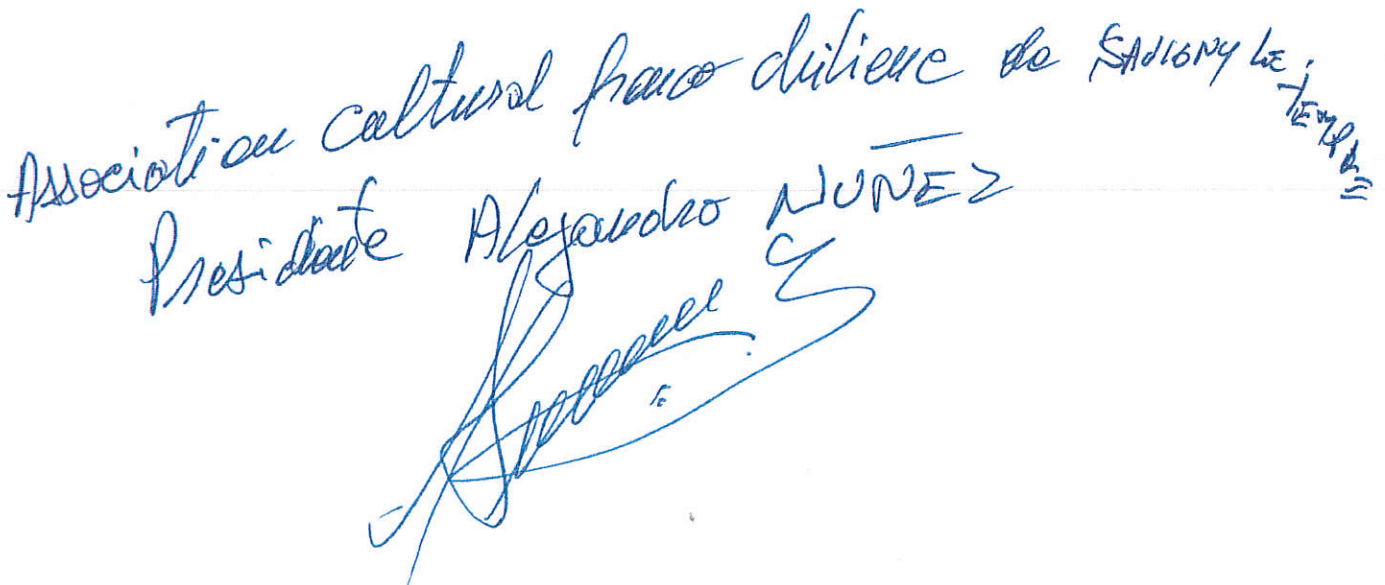 Association cultural franco chilienne de SAVIGNY LE TEMPLE
Presidente Alejandro NUÑEZ